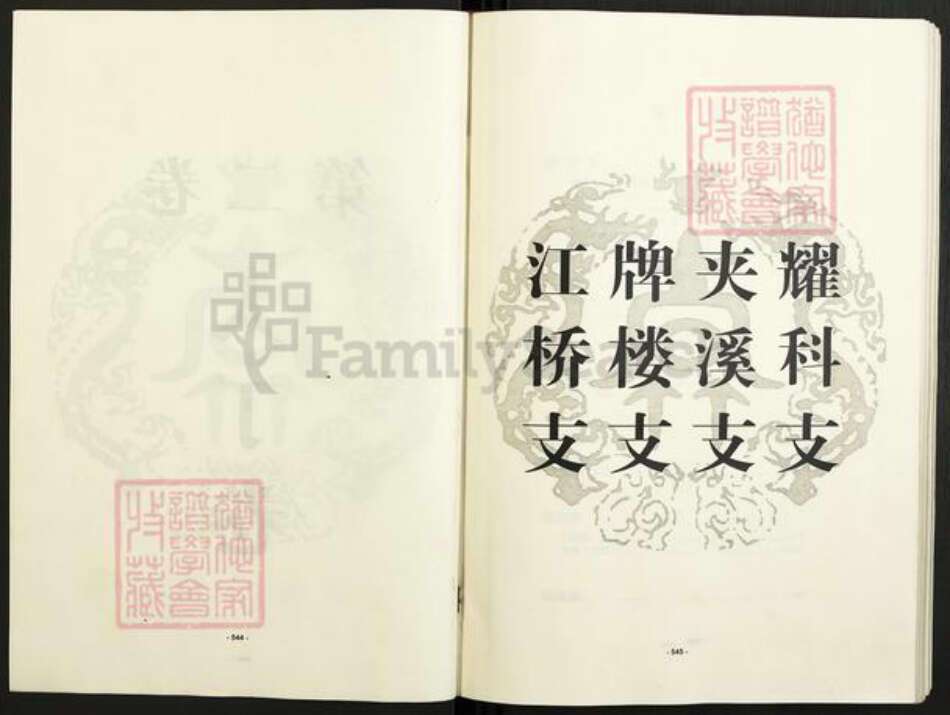 耀科支
夹溪支
牌楼支
江桥支
- 544 -
- 545 -
Family